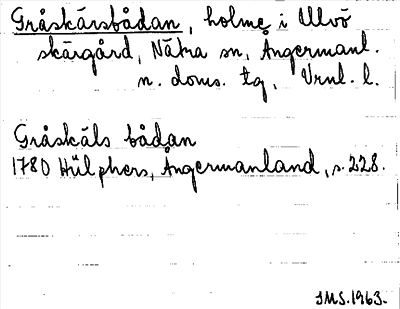 Gråskärsbådan, holme i Ulvö
skärgård, Nätra sn, Ångermanl.
n. doms. tg, Vrnl. l.
Gråskäls bådan
1780 Hülphers, Ångermanland, s. 228.
IMS. 1963.